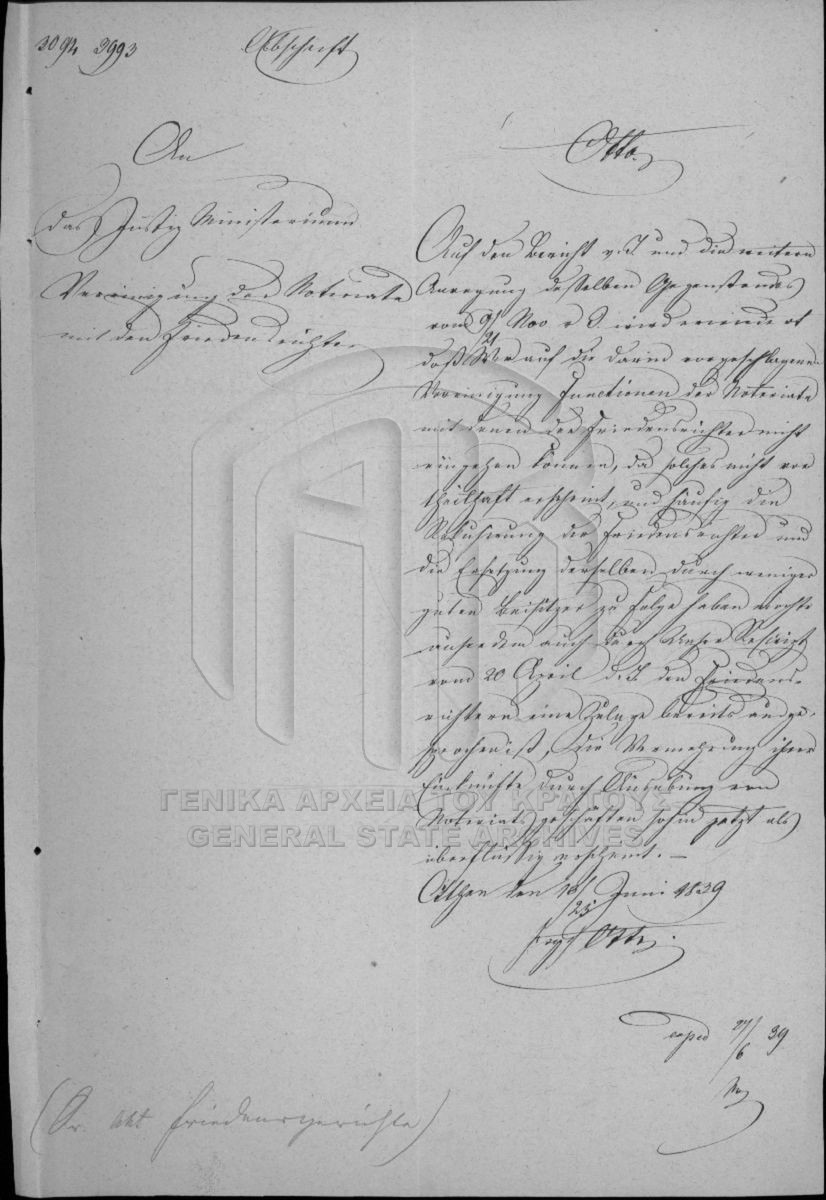 3094 3993
Abschrift
An
das Justiz Ministerium
Vereinigung der Notariate
mit den Friedensrichter
Otto.
Auf den Bericht v. J. und die weitern
Anregung desselben Gegenstandes
vom 9/21 Nov. v. J. wird erwiedert
daß Wir auf die darin vorgeschlagene
Vereinigung Functionen der Notariate
mit denen der Friedensrichter nicht
eingehen können, da solches nicht vor
theilhaft erscheint, und häufig die
Rekusirung der Friedensrichter und
die Ersetzung derselben durch weniger
guten Beisitzer zu Folge haben möchte
ausserdem auch durch Unser Rescript
vom 20 April d. J. den Friedens-
richtern eine Zulage bereits ausge-
sprochen ist, die Vermehrung ihrer
Einkünfte durch Ausübung von
Notariatsgeschäften sohin jetzt als
überflüssig erscheint. —
Athen den 13/25 Juni 1839
Otto.
exped 27/6 39
(Fr. Akt Friedensgerichte)
ΓΕΝΙΚΑ ΑΡΧΕΙΑ ΤΟΥ ΚΡΑΤΟΥΣ
GENERAL STATE ARCHIVES